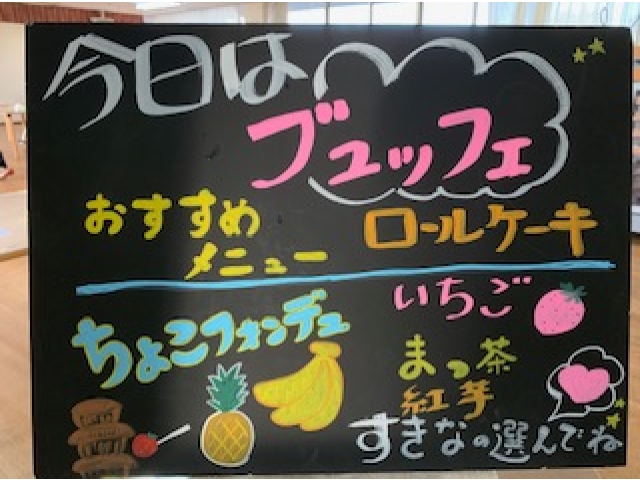 今日は
ブュッフェ
おすすめ
メニュー
ロールケーキ
ちょこフォンデュ
いちご
まっ茶
紅芋
すきなの選んでね